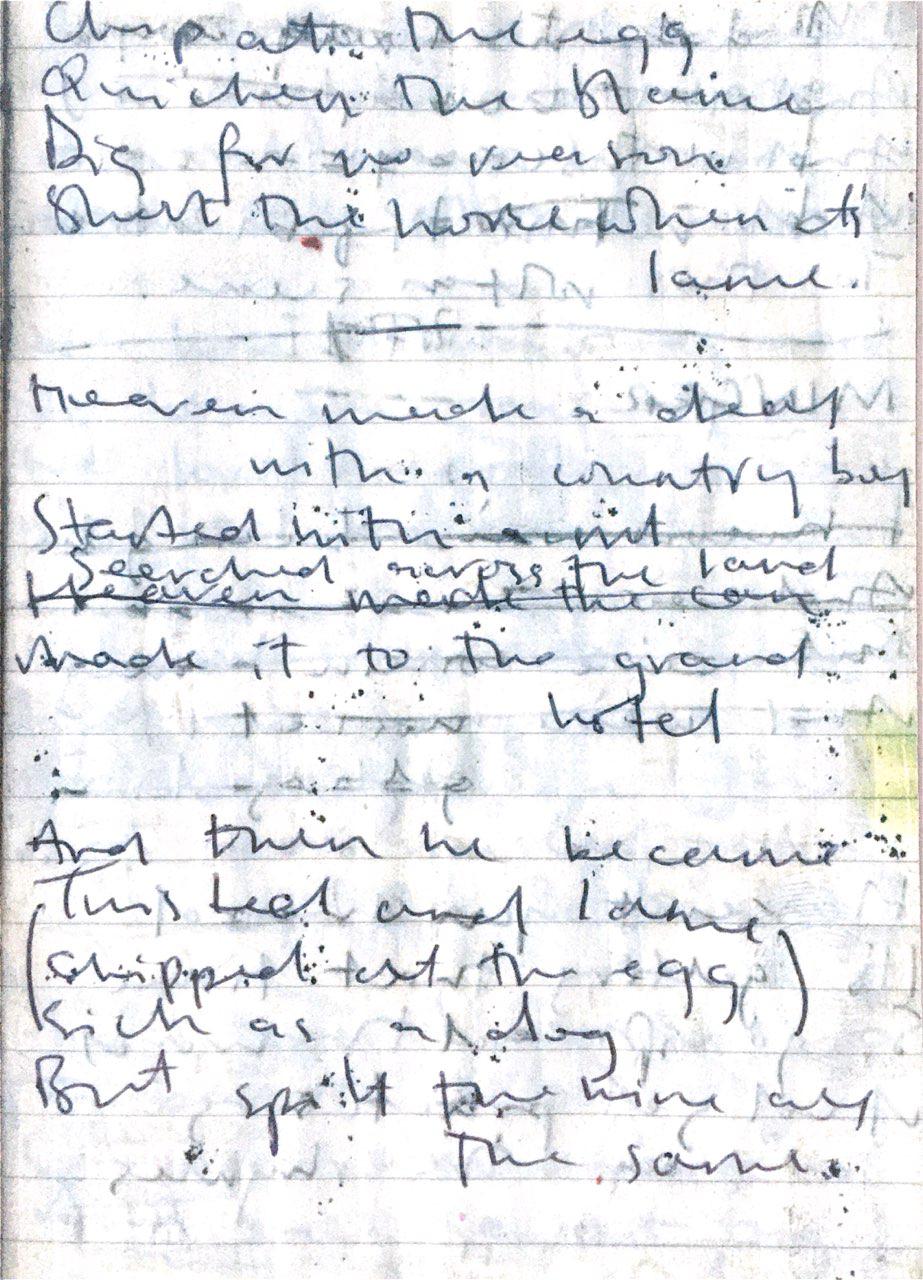 Chip at the egg
Quicken the blame
Dig for no reason
Shoot the horse when it's
lame.
Heaven made a deal
with a country boy
Started with a
Searched across the land
Heaven made the
Made it to the grand
hotel
And then he became
Twisted and lame
(chipped at the egg)
Sick as a dog
But spilt the wine all
the same.